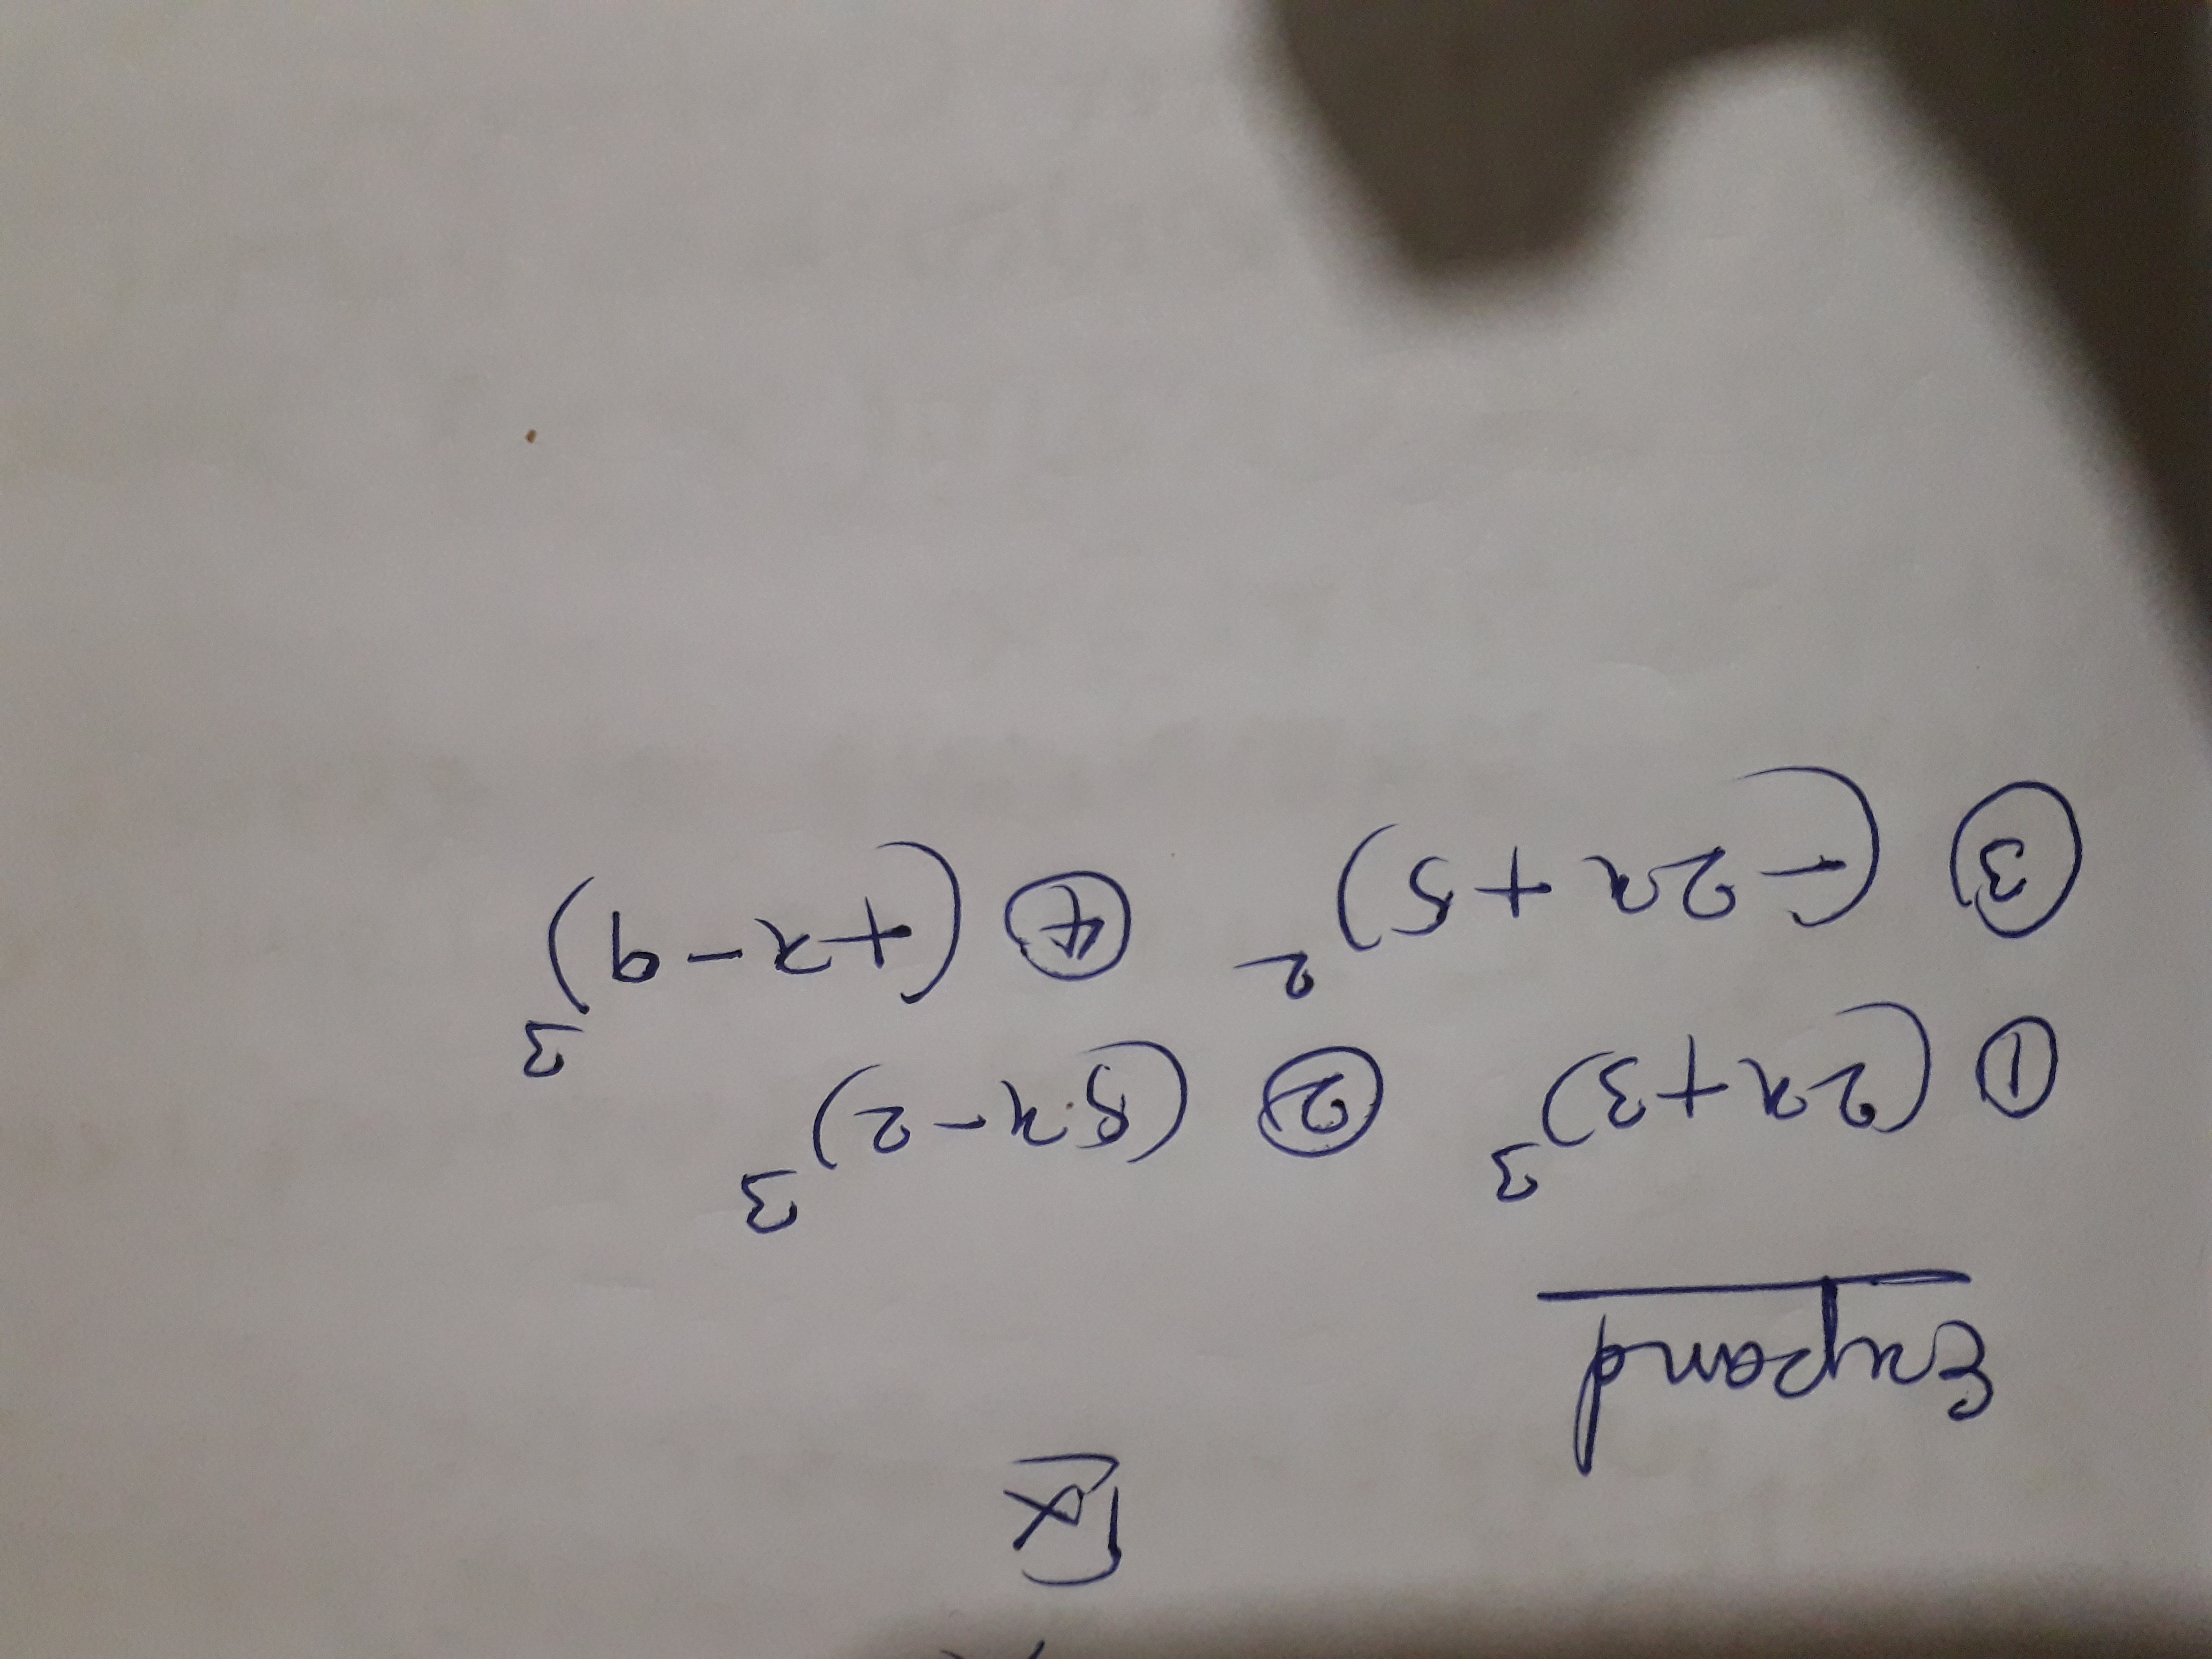 Ex
Expand
① (2x+3)³ ② (5x-2)³
③ (-2x+5)² ④ (+x-9)³